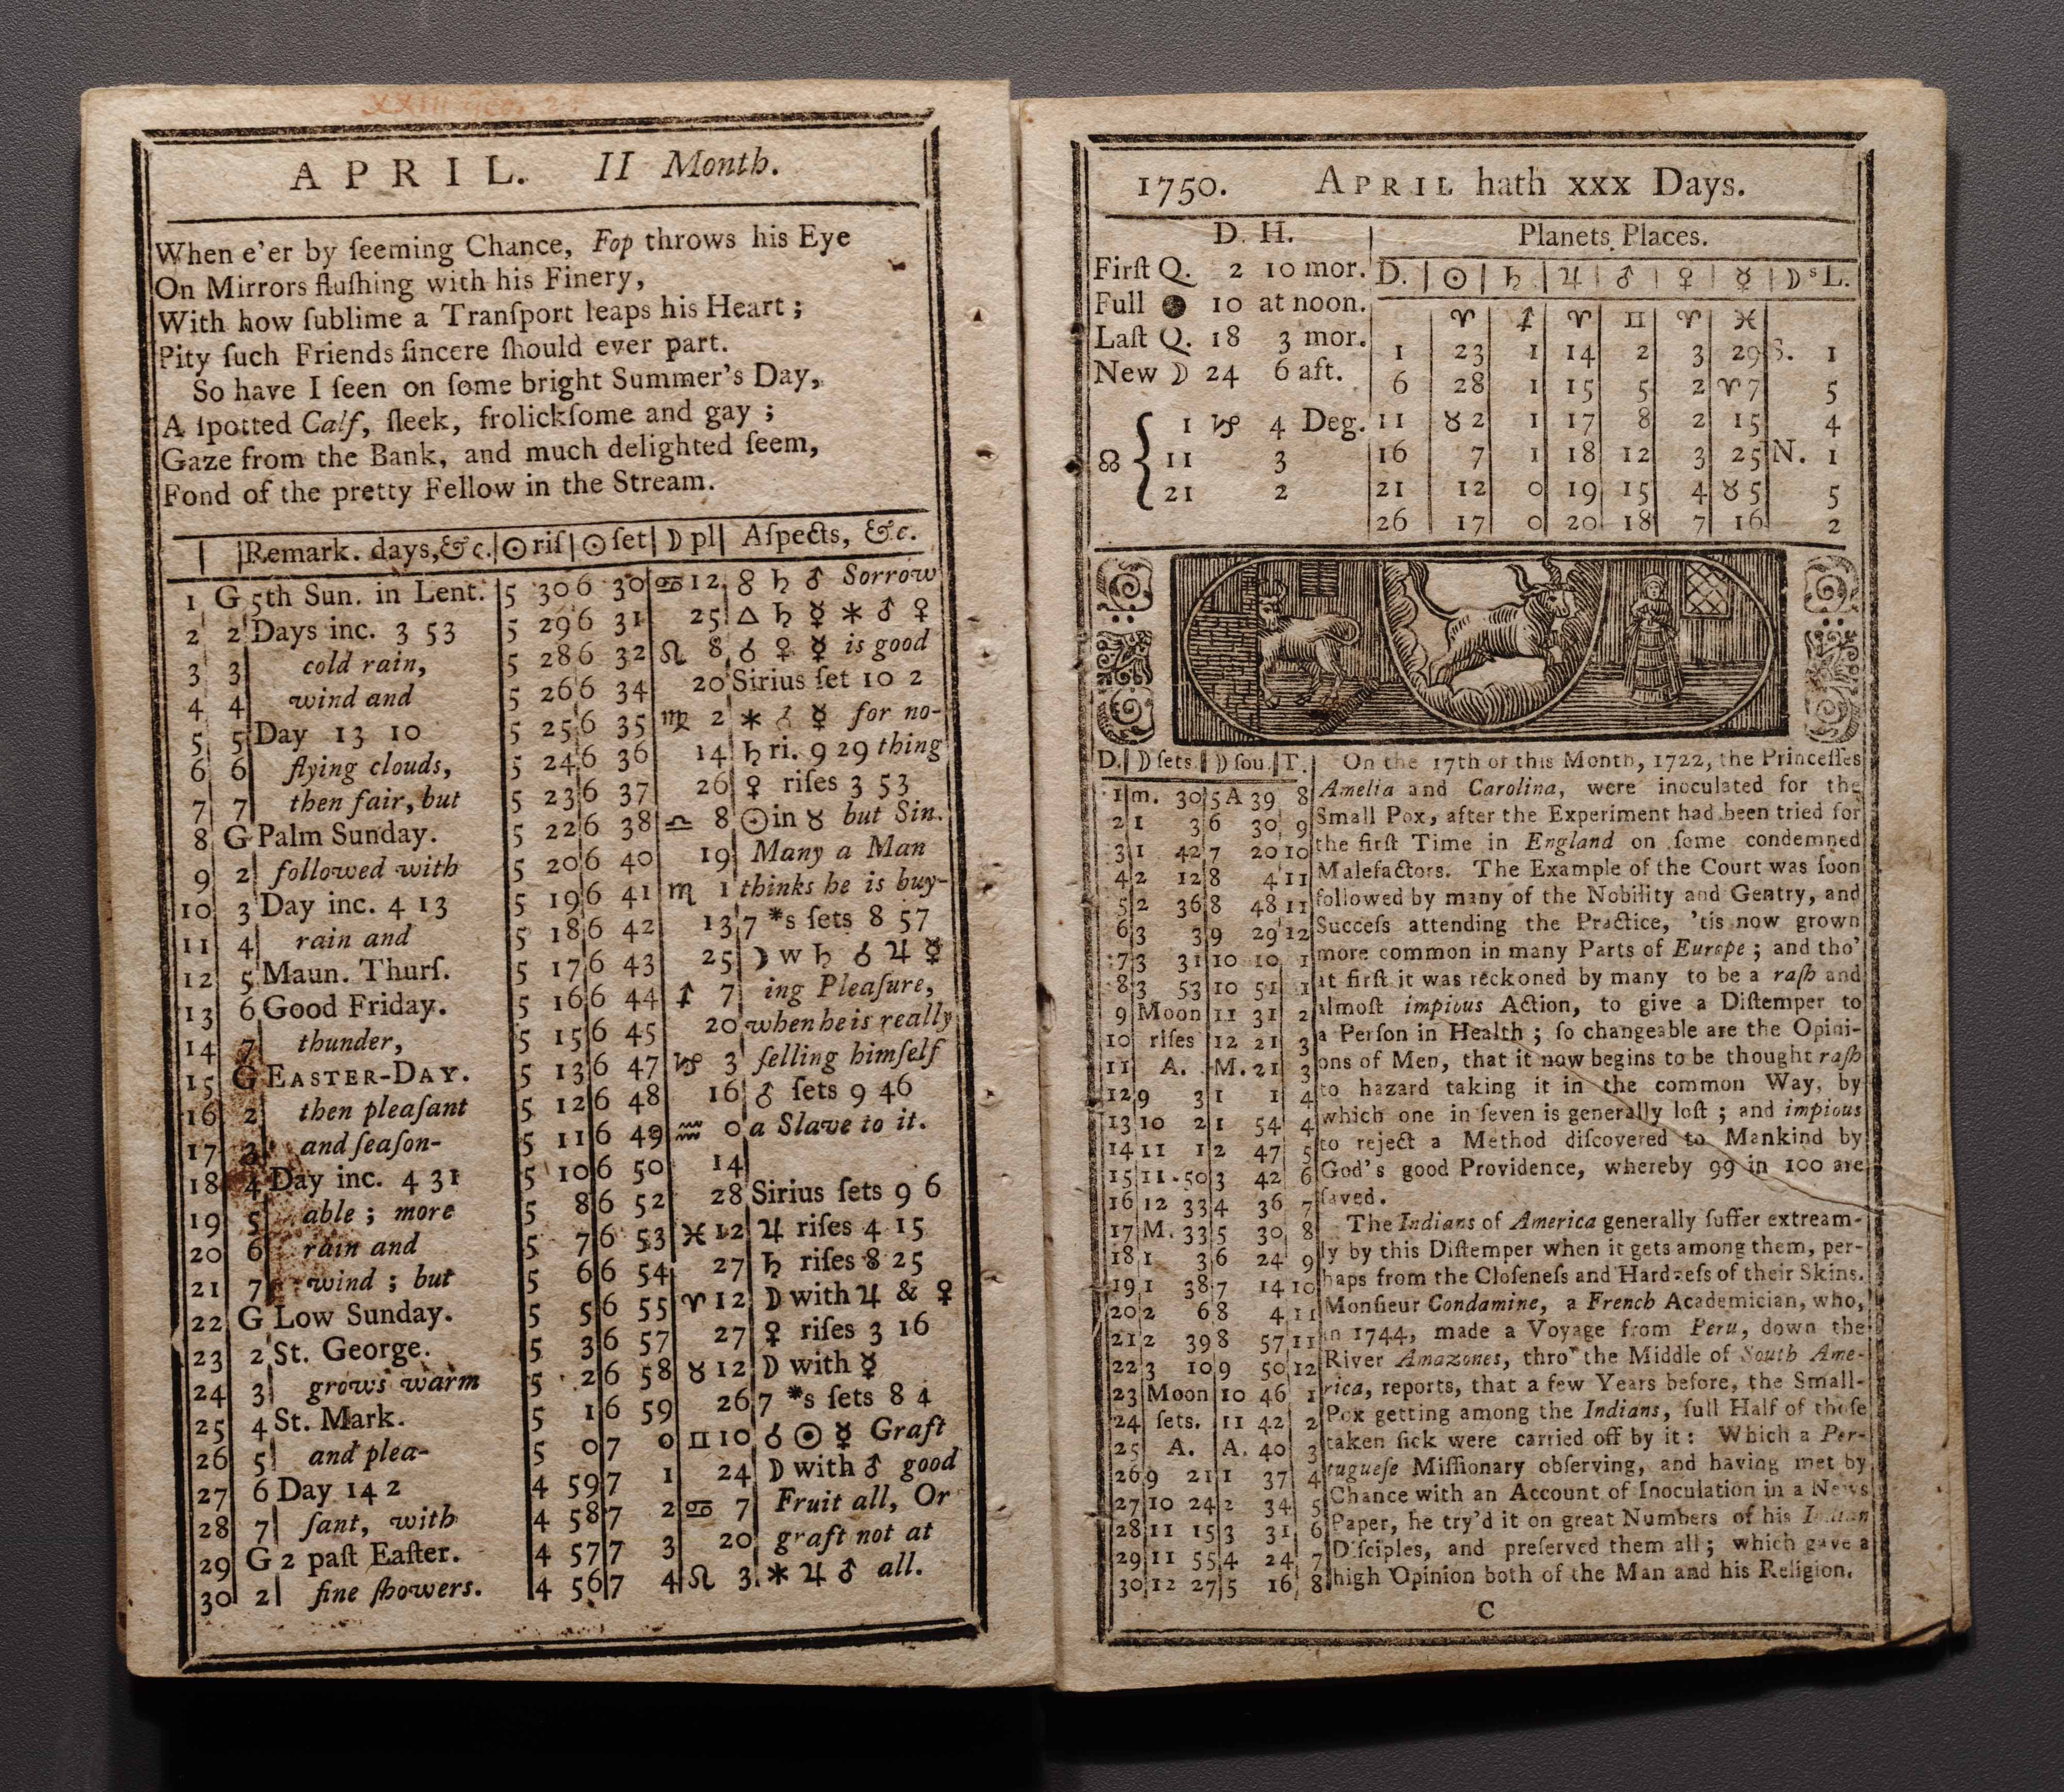 APRIL. II Month.
When e'er by ſeeming Chance, Fop throws his Eye
On Mirrors fluſhing with his Finery,
With how ſublime a Tranſport leaps his Heart;
Pity ſuch Friends ſincere ſhould ever part.
So have I ſeen on ſome bright Summer's Day,
A ſpotted Calf, ſleek, frolickſome and gay;
Gaze from the Bank, and much delighted ſeem,
Fond of the pretty Fellow in the Stream.
Remark. days, &c. ☉ riſ ☉ ſet ☽ pl Aſpects, &c.
1 G 5th Sun. in Lent. 5 30 6 30 ♋ 12 ☍ ♄ ♂ Sorrow
2 2 Days inc. 3 53 5 29 6 31 25 △ ♄ ☿ ✱ ♂ ♀
3 3 cold rain, 5 28 6 32 ♌ 8 ☌ ♀ ☿ is good
4 4 wind and 5 26 6 34 20 Sirius ſet 10 2
5 5 Day 13 10 5 25 6 35 ♍ 2 ✱ ♂ ☿ for no-
6 6 flying clouds, 5 24 6 36 14 ♄ ri. 9 29 thing
7 7 then fair, but 5 23 6 37 26 ♀ riſes 3 53
8 G Palm Sunday. 5 22 6 38 ♎ 8 ☉ in ♉ but Sin.
9 2 followed with 5 20 6 40 19 Many a Man
10 3 Day inc. 4 13 5 19 6 41 ♏ 1 thinks he is buy-
11 4 rain and 5 18 6 42 13 7 *s ſets 8 57
12 5 Maun. Thurſ. 5 17 6 43 25 ☽ w ♄ ☌ ♃ ☿
13 6 Good Friday. 5 16 6 44 ♐ 7 ing Pleaſure,
14 7 thunder, 5 15 6 45 20 when he is really
15 G EASTER-DAY. 5 13 6 47 ♑ 3 ſelling himſelf
16 2 then pleaſant 5 12 6 48 16 ♂ ſets 9 46
17 3 and ſeaſon- 5 11 6 49 ♒ 0 a Slave to it.
18 4 Day inc. 4 31 5 10 6 50 14
19 5 able; more 5 8 6 52 28 Sirius ſets 9 6
20 6 rain and 5 7 6 53 ♓ 12 ♃ riſes 4 15
21 7 wind; but 5 6 6 54 27 ♄ riſes 8 25
22 G Low Sunday. 5 5 6 55 ♈ 12 ☽ with ♃ & ♀
23 2 St. George. 5 3 6 57 27 ♀ riſes 3 16
24 3 grows warm 5 2 6 58 ♉ 12 ☽ with ☿
25 4 St. Mark. 5 1 6 59 26 7 *s ſets 8 4
26 5 and plea- 5 0 7 0 ♊ 10 ☌ ☉ ☿ Graft
27 6 Day 14 2 4 59 7 1 24 ☽ with ♂ good
28 7 ſant, with 4 58 7 2 ♋ 7 Fruit all, Or
29 G 2 paſt Eaſter. 4 57 7 3 20 graft not at
30 2 fine ſhowers. 4 56 7 4 ♌ 3 ✱ ♃ ♂ all.
1750. APRIL hath xxx Days.
D. H.
Firſt Q. 2 10 mor.
Full ● 10 at noon.
Laſt Q. 18 3 mor.
New ☽ 24 6 aft.
☊ 1 ♑ 4 Deg.
11 3
21 2
Planets Places.
D. ☉ ♄ ♃ ♂ ♀ ☿ ☽s L.
♈ ♐ ♈ ♊ ♈ ♓
1 23 1 14 2 3 29 S. 1
6 28 1 15 5 2 ♈ 7 5
11 ♉ 2 1 17 8 2 15 4
16 7 1 18 12 3 25 N. 1
21 12 0 19 15 4 ♉ 5 5
26 17 0 20 18 7 16 2
D. ☽ ſets. ☽ ſou. T.
1 m. 30 5 A 39 8
2 1 3 6 30 9
3 1 42 7 20 10
4 2 12 8 4 11
5 2 36 8 48 11
6 3 3 9 29 12
7 3 31 10 10 1
8 3 53 10 51 1
9 Moon 11 31 2
10 riſes 12 21 3
11 A. M. 21 3
12 9 3 1 1 4
13 10 2 1 54 4
14 11 1 2 47 5
15 11 50 3 42 6
16 12 33 4 36 7
17 M. 33 5 30 8
18 1 3 6 24 9
19 1 38 7 14 10
20 2 6 8 4 11
21 2 39 8 57 11
22 3 10 9 50 12
23 Moon 10 46 1
24 ſets. 11 42 2
25 A. A. 40 3
26 9 21 1 37 4
27 10 24 2 34 5
28 11 15 3 31 6
29 11 55 4 24 7
30 12 27 5 16 8
On the 17th of this Month, 1722, the Princeſſes
Amelia and Carolina, were inoculated for the
Small Pox, after the Experiment had been tried for
the firſt Time in England on ſome condemned
Malefactors. The Example of the Court was ſoon
followed by many of the Nobility and Gentry, and
Succeſs attending the Practice, 'tis now grown
more common in many Parts of Europe; and tho'
at firſt it was reckoned by many to be a raſh and
almoſt impious Action, to give a Diſtemper to
a Perſon in Health; ſo changeable are the Opini-
ons of Men, that it now begins to be thought raſh
to hazard taking it in the common Way, by
which one in ſeven is generally loſt; and impious
to reject a Method diſcovered to Mankind by
God's good Providence, whereby 99 in 100 are
ſaved.
The Indians of America generally ſuffer extream-
ly by this Diſtemper when it gets among them, per-
haps from the Cloſeneſs and Hardneſs of their Skins.
Monſieur Condamine, a French Academician, who,
in 1744, made a Voyage from Peru, down the
River Amazones, thro' the Middle of South Ame-
rica, reports, that a few Years before, the Small-
Pox getting among the Indians, full Half of thoſe
taken ſick were carried off by it: Which a Por-
tugueſe Miſſionary obſerving, and having met by
Chance with an Account of Inoculation in a News
Paper, he try'd it on great Numbers of his Indian
Diſciples, and preſerved them all; which gave a
high Opinion both of the Man and his Religion.
C